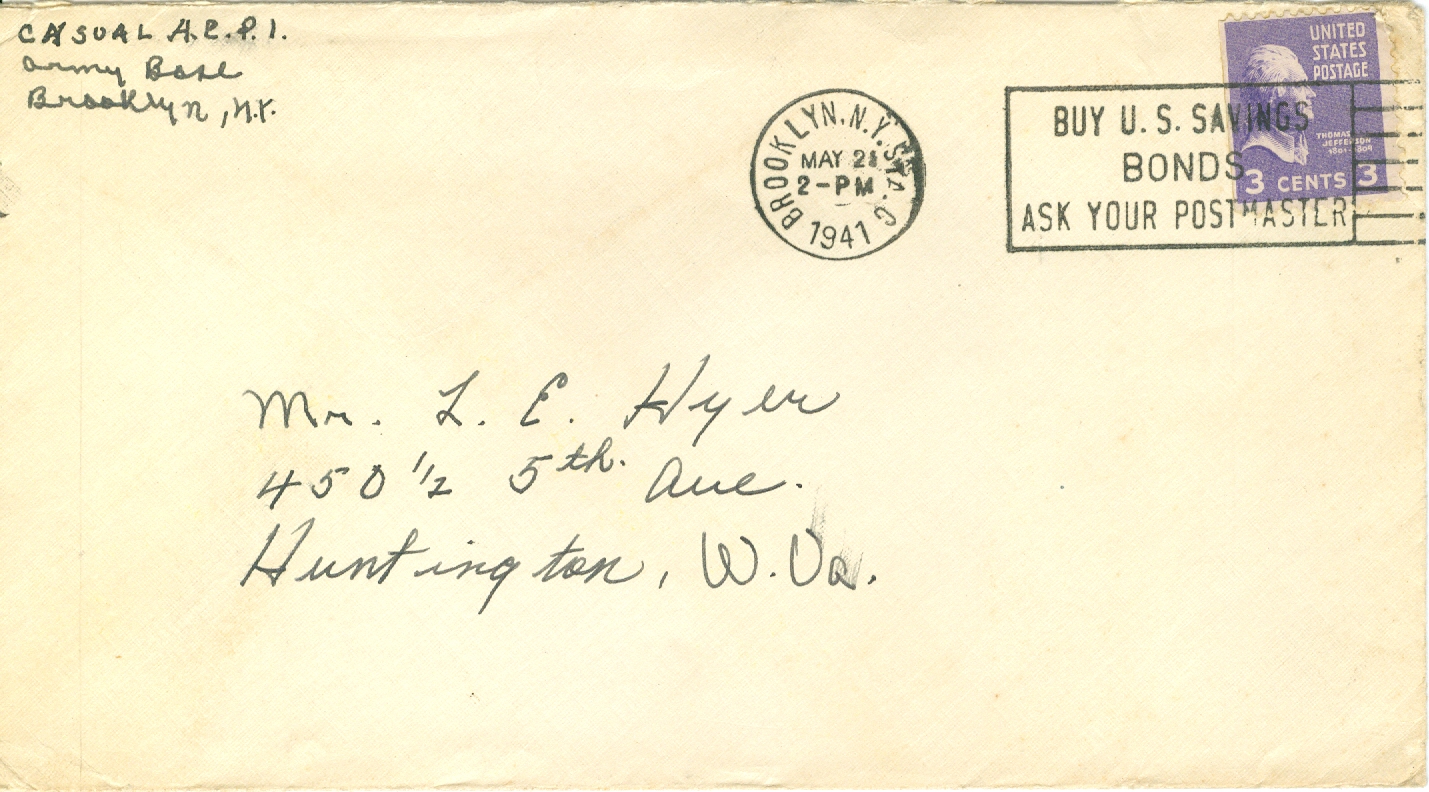 CASUAL A.E.P.I.
Army Base
Brooklyn, N.Y.
BROOKLYN, N.Y. STA. C
MAY 21
2-PM
1941
BUY U. S. SAVINGS
BONDS
ASK YOUR POSTMASTER
UNITED
STATES
POSTAGE
THOMAS
JEFFERSON
1801-1809
3 CENTS 3
Mr. L. E. Hyer
450 1/2 5th. Ave.
Huntington, W. Va.